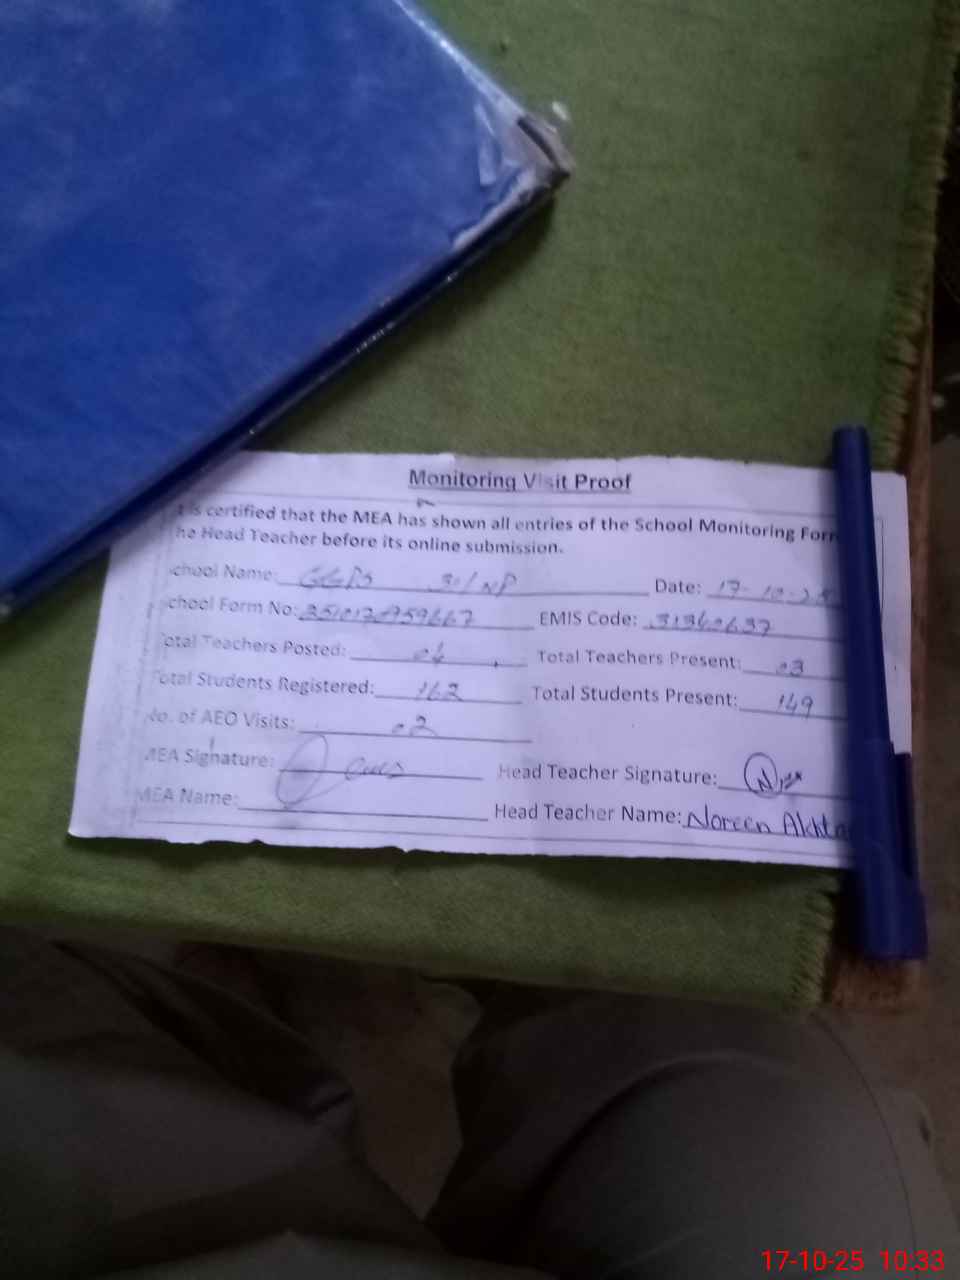 Monitoring Visit Proof
t is certified that the MEA has shown all entries of the School Monitoring Form
he Head Teacher before its online submission.
chool Name: GGPS 31/NP Date: 17-10-25
chool Form No: EMIS Code: 31360637
otal Teachers Posted: 04 Total Teachers Present: 03
Total Students Registered: 162 Total Students Present: 149
No. of AEO Visits: 02
MEA Signature: Head Teacher Signature:
MEA Name: Head Teacher Name: Noreen Akhta
17-10-25 10:33